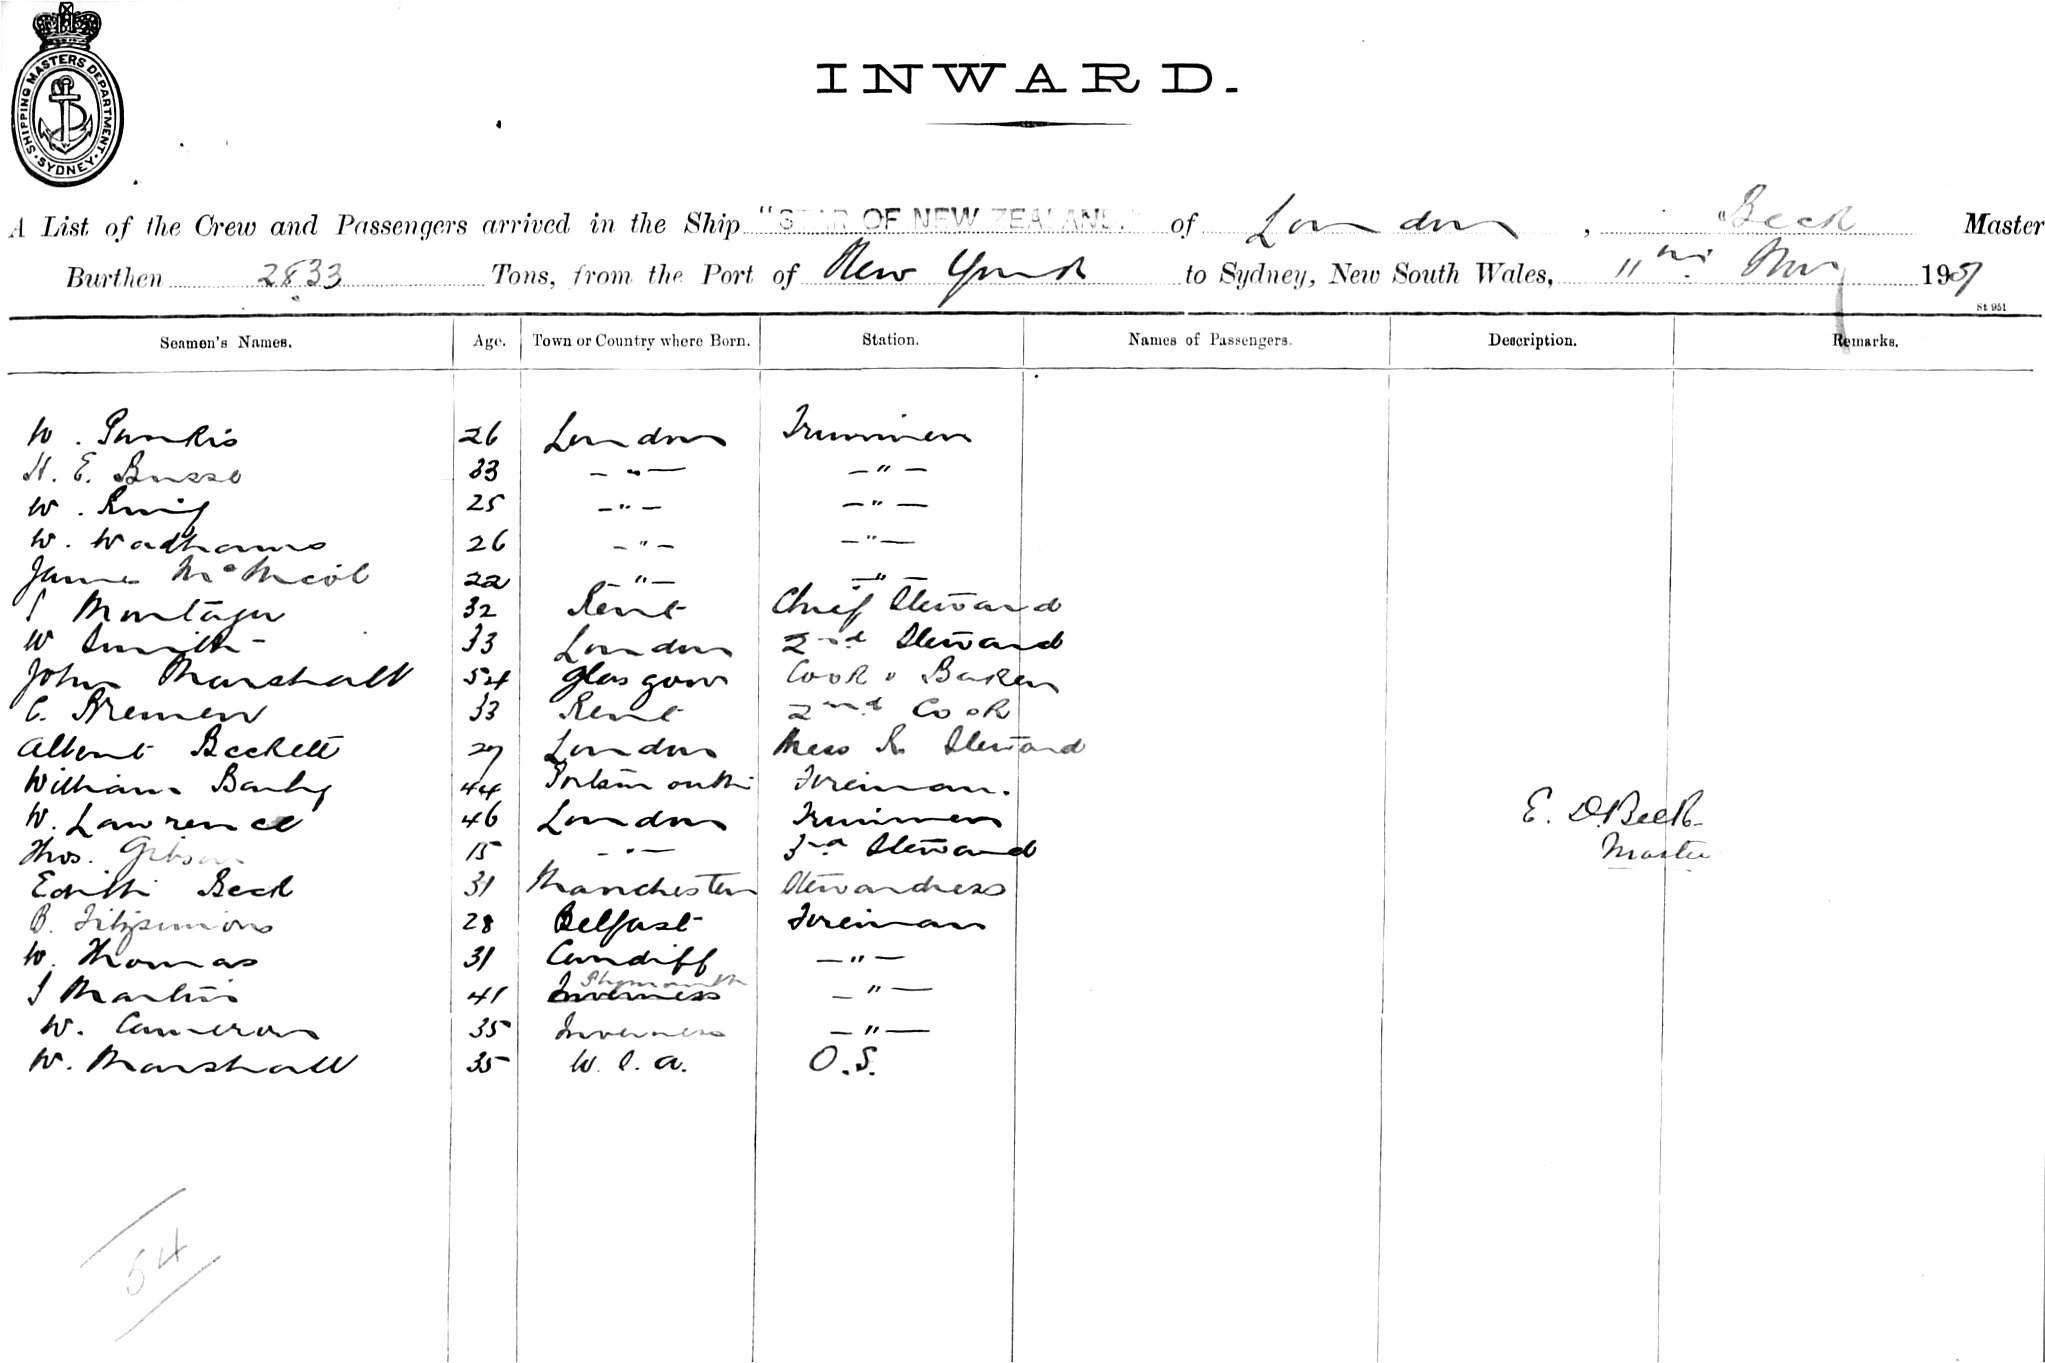 SHIPPING MASTERS DEPARTMENT.
· SYDNEY ·
INWARD.
A List of the Crew and Passengers arrived in the Ship "STAR OF NEW ZEALAND." of London, Beck Master
Burthen 2833 Tons, from the Port of New York to Sydney, New South Wales, 11th Nov 190
St 951
Seamen's Names. Age. Town or Country where Born. Station. Names of Passengers. Description. Remarks.
W. 26 London Trimmer
H. E. Busse 33 — " — — " —
W. King 25 — " — — " —
W. Wadhams 26 — " — — " —
James McNicol 22 — " — — " —
Montagu 32 Kent Chief Steward
W Smith 33 London 2nd Steward
John Marshall 54 Glasgow Cook & Baker
C. Bremen 33 Kent 2nd Cook
Albert Beckett 27 London Mess R. Steward
William 44 Portsmouth Fireman.
W. Lawrence 46 London Trimmer
E. D. Beck
Thos. Gibson 15 — " — 3rd Steward
Master
Edith Beck 31 Manchester Stewardess
B. Fitzsimons 28 Belfast Fireman
W. Thomas 31 Cardiff — " —
Plymouth
J Martin 41 Inverness — " —
W. Cameron 35 Inverness — " —
W. Marshall 35 W. I. A. O.S.
54